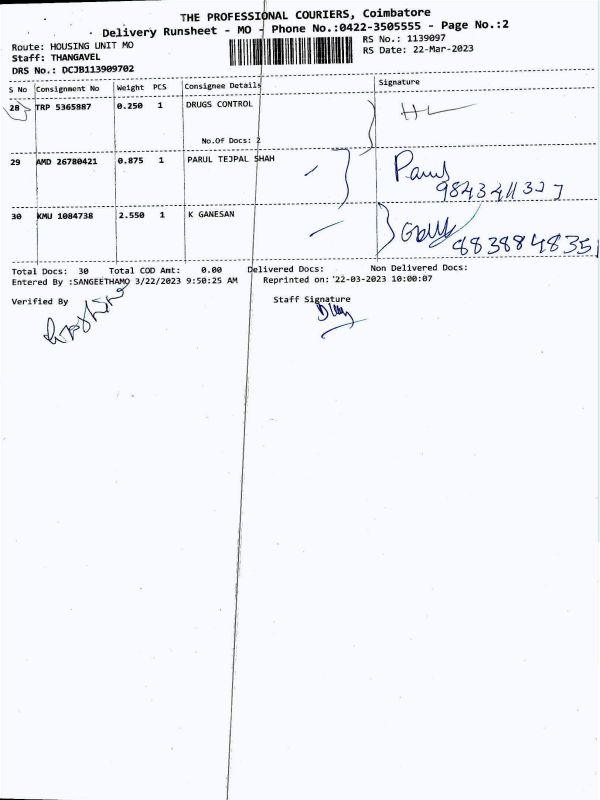 THE PROFESSIONAL COURIERS, Coimbatore
Delivery Runsheet - MO - Phone No.:0422-3505555 - Page No.:2
Route: HOUSING UNIT MO
RS No.: 1139097
Staff: THANGAVEL
RS Date: 22-Mar-2023
DRS No.: DCJB113909702
S No Consignment No Weight PCS Consignee Details Signature
28 TRP 5365887 0.250 1 DRUGS CONTROL
No.Of Docs: 2
29 AMD 26780421 0.875 1 PARUL TEJPAL SHAH
Parul
30 KMU 1084738 2.550 1 K GANESAN
Total Docs: 30 Total COD Amt: 0.00 Delivered Docs: Non Delivered Docs:
Entered By :SANGEETHAMO 3/22/2023 9:50:25 AM Reprinted on: '22-03-2023 10:00:07
Verified By Staff Signature